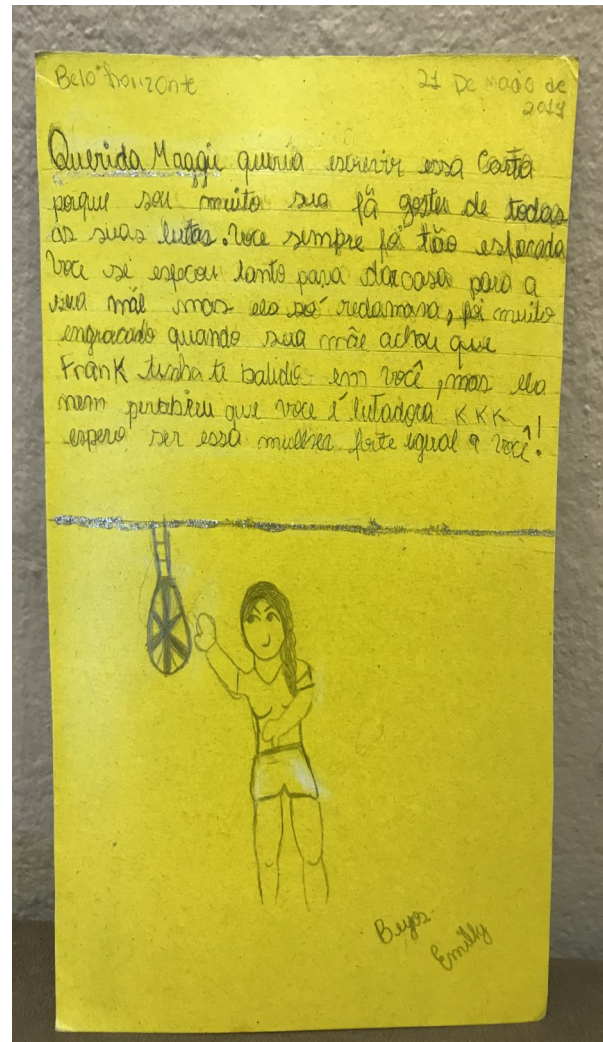 Belo horizonte 21 De maio de
2019
Querida Maggie queria escrever essa Carta
porque sou muito sua fã gostei de todas
as suas lutas. Voce sempre foi tão esforcada
Voce se esforcou tanto para dar casa para a
sua mãe mas ela só reclamava, foi muito
engracado quando sua mãe achou que
Frank tinha te batido em você, mas ela
nem percebeu que voce é lutadora KKK
espero ser essa mulher forte igual a você!
Beijos
Emilly